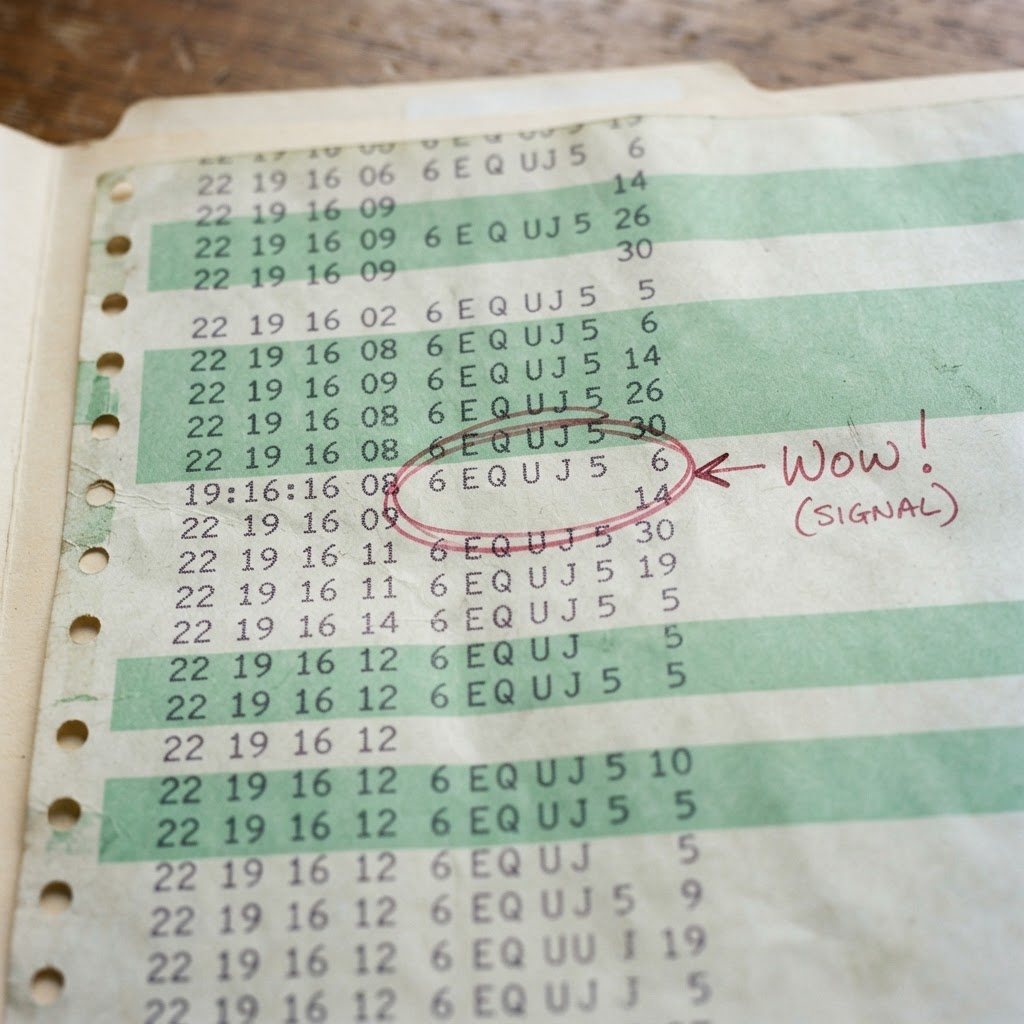 22 19 16 06 6 E Q UJ 5 6
22 19 16 09 14
22 19 16 09 6 E Q UJ 5 26
22 19 16 09 30
22 19 16 02 6 E Q UJ 5 5
22 19 16 08 6 E Q UJ 5 6
22 19 16 09 6 E Q UJ 5 14
22 19 16 08 6 E Q UJ 5 26
22 19 16 08 6 EQ UJ 5 30
19:16:16 08 6 EQ U J 5 6
22 19 16 09 14
22 19 16 11 6 EQ U J 5 30
22 19 16 11 6 EQ U J 5 19
22 19 16 14 6 EQ U J 5 5
22 19 16 12 6 EQ U J 5
22 19 16 12 6 EQ UJ 5 5
22 19 16 12
22 19 16 12 6 EQ UJ 5 10
22 19 16 12 6 EQ UJ 5 5
22 19 16 12 6 EQ UJ 5
22 19 16 12 6 EQ UJ 5 9
22 19 16 12 6 EQ UU I 19
22 19 16 12 6 EQ UJ J 5
WOW!
(SIGNAL)